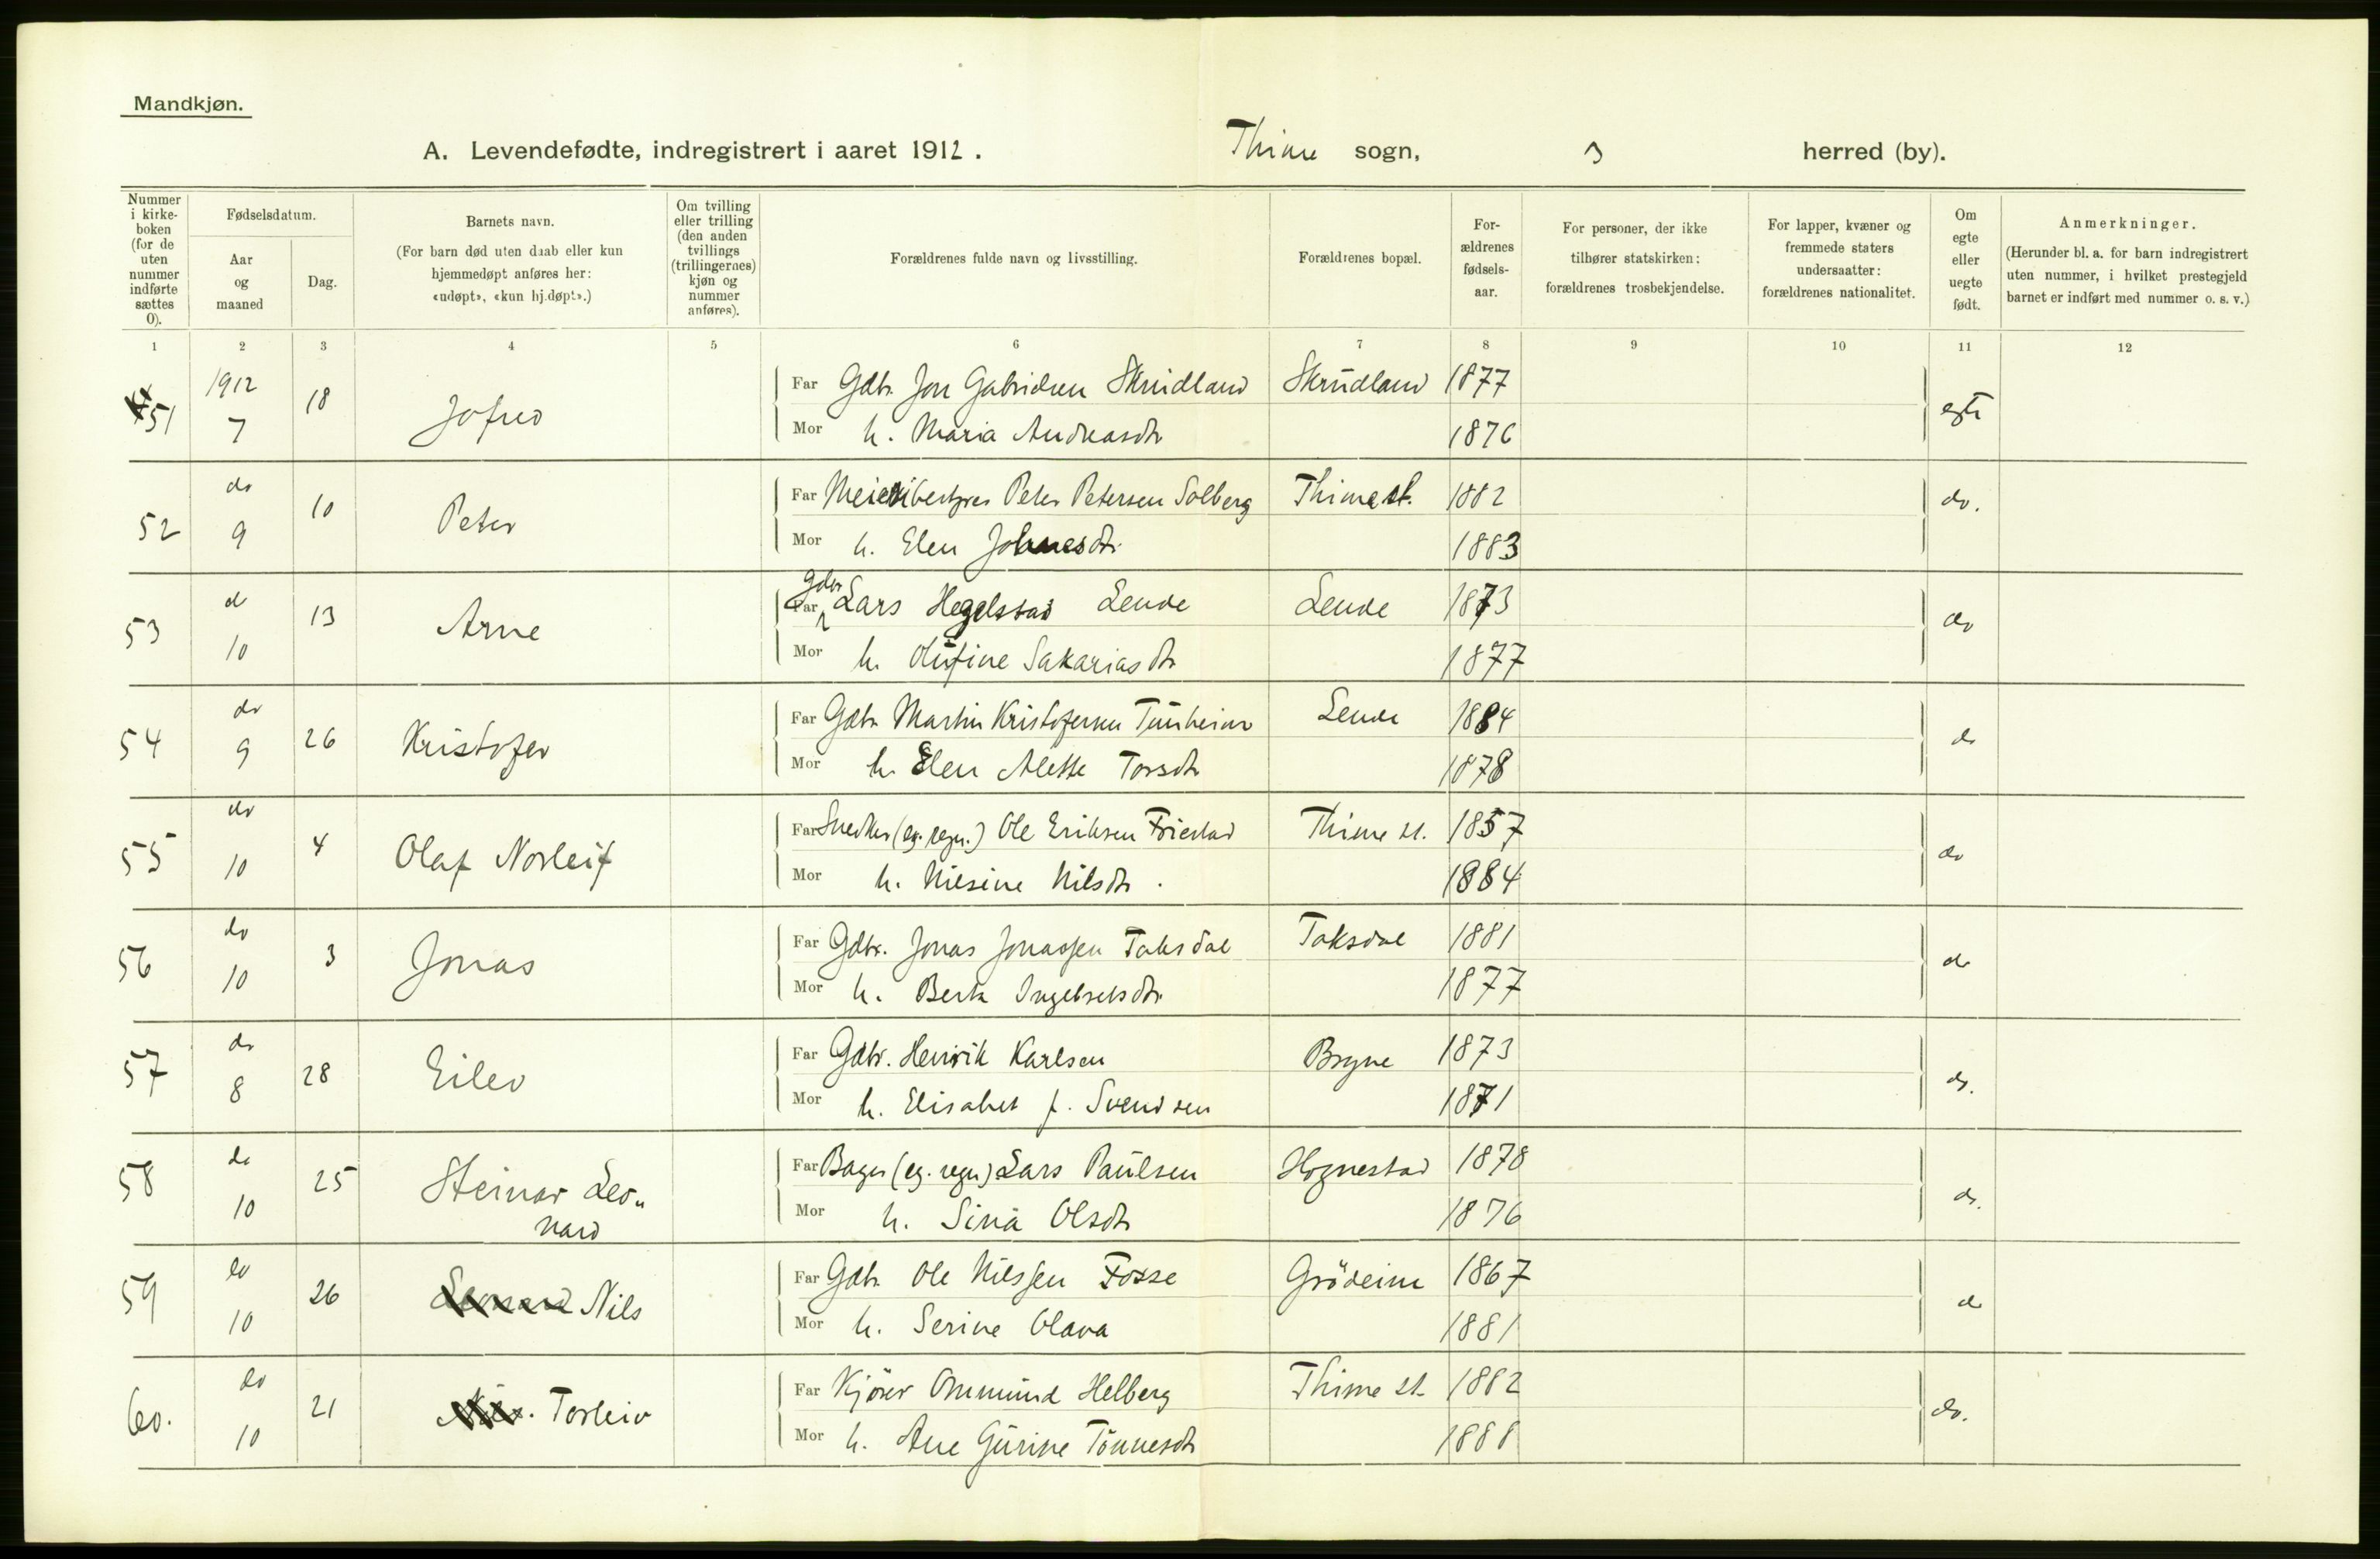 Mandkjøn.
A. Levendefødte, indregistrert i aaret 1912. Thime sogn, herred (by).
Nummer i kirke-boken (for de uten nummer indførte sættes 0).
Fødselsdatum.
Aar og maaned
Dag.
Barnets navn.
(For barn død uten daab eller kun hjemmedøpt anføres her: «udøpt», «kun hj.døpt».)
Om tvilling eller trilling (den anden tvillings (trillingernes) kjøn og nummer anføres).
Forældrenes fulde navn og livsstilling.
Forældrenes bopæl.
For-ældrenes fødsels-aar.
For personer, der ikke tilhører statskirken: forældrenes trosbekjendelse.
For lapper, kvæner og fremmede staters undersaatter: forældrenes nationalitet.
Om egte eller uegte født.
Anmerkninger.
(Herunder bl. a. for barn indregistrert uten nummer, i hvilket prestegjeld barnet er indført med nummer o. s. v.)
1 2 3 4 5 6 7 8 9 10 11 12
51 1912 7 18 Far Gdbr. Jon Gabrielsen Skrudland Skrudland 1877 egte
Mor h. Maria Andreasdtr 1876
52 do 9 10 Peter Far Meieribestyrer Peter Petersen Solberg Thime st. 1882 do.
Mor h. Elen Johnesdtr. 1883
53 do 10 13 Arne Far Gdbr Lars Hegelstad Lende Lende 1873 do
Mor h. Olufine Sakariasdtr 1877
54 do 9 26 Kristofer Far Gdbr Martin Kristofersen Tunheim Lende 1884 do
Mor h. Elen Alette Torsdtr 1878
55 do 10 4 Olaf Norleif Far Snedker (eg. regn.) Ole Eriksen Friestad Thime st. 1857 do
Mor h. Nilsine Nilsdtr. 1884
56 do 10 3 Jonas Far Gdbr. Jonas Jonassen Taksdal Taksdal 1881 do
Mor h. Berta Ingebretsdtr 1877
57 do 8 28 Eilev Far Gdbr. Henrik Karlsen Bryne 1873 do.
Mor h. Elisabet f. Svendsen 1871
58 do 10 25 Steinar Leo„nard Far Bager (eg. regn) Lars Paulsen Hognestad 1878 do.
Mor h. Sina Olsdtr 1876
59 do 10 26 Leonard Nils Far Gdbr Ole Nilssen Fosse Grödeim 1867 do
Mor h. Serine Olava 1881
60. do 10 21 Nils. Torleiv Far Kjörer Ommund Helberg Thime st. 1882 do.
Mor h. Ane Gurine Tönnesdtr 1888